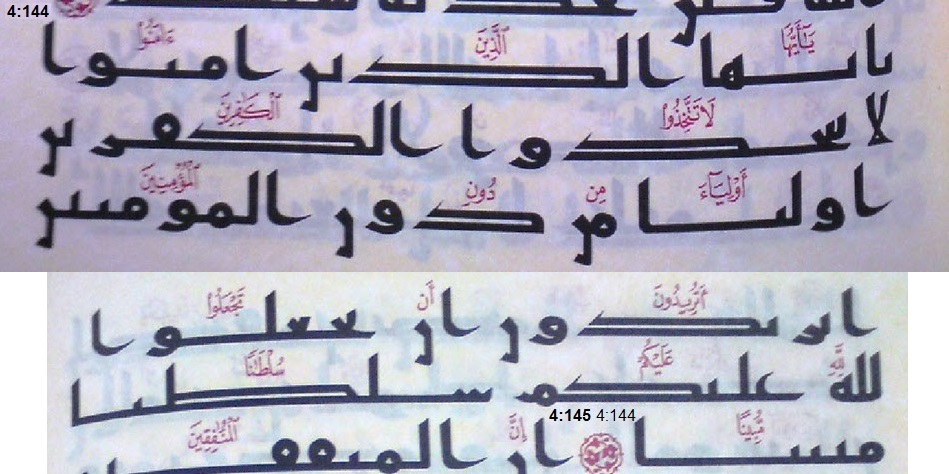 4:144
يَٰٓأَيُّهَا ٱلَّذِينَ ءَامَنُوا۟
يايها الذين امنوا
لَا تَتَّخِذُوا۟ ٱلْكَٰفِرِينَ
لا تتخذوا الكفرين
أَوْلِيَآءَ مِن دُونِ ٱلْمُؤْمِنِينَ
اوليا من دون المومنين
أَتُرِيدُونَ أَن تَجْعَلُوا۟
اتريدون ان تجعلوا
لِلَّهِ عَلَيْكُمْ سُلْطَٰنًا
لله عليكم سلطنا
4:145 4:144
مُّبِينًا إِنَّ ٱلْمُنَٰفِقِينَ
مبينا ان المنفقين